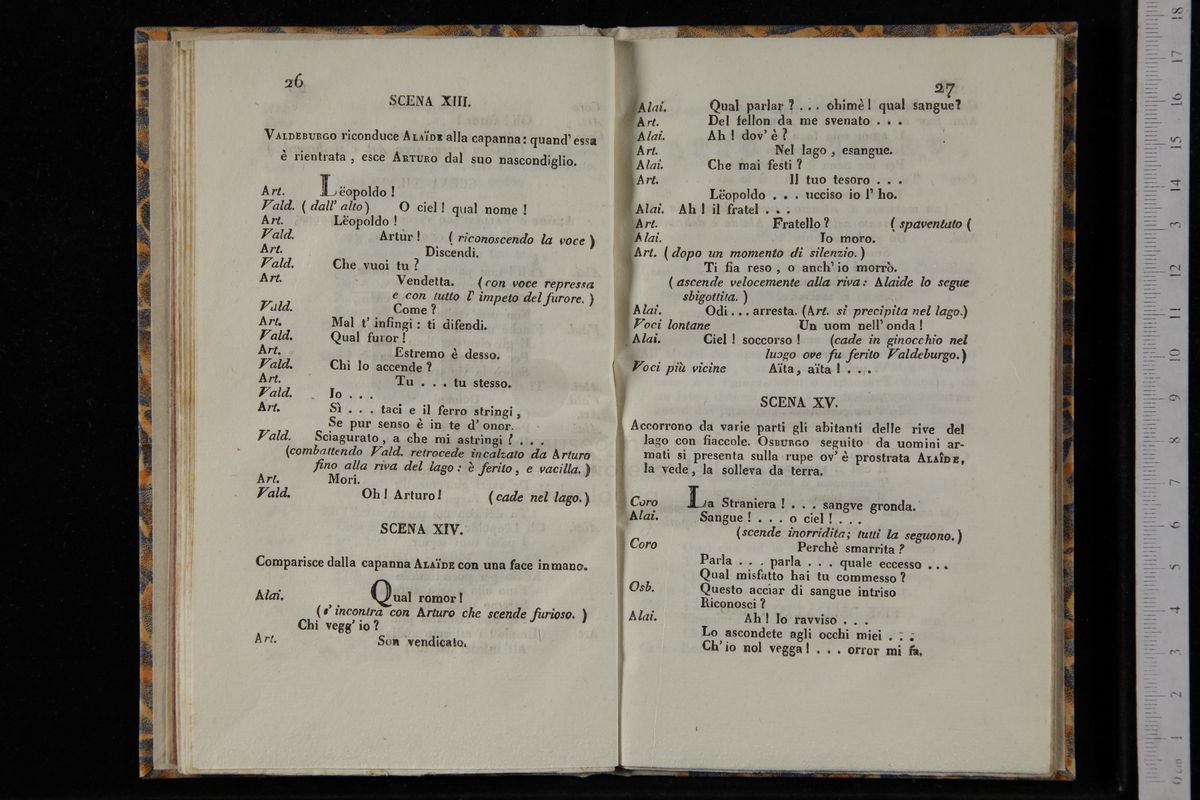 26
SCENA XIII.
VALDEBURGO riconduce ALAÏDE alla capanna: quand' essa
è rientrata, esce ARTURO dal suo nascondiglio.
Art. Lëopoldo!
Vald. (dall' alto) O ciel! qual nome!
Art. Lëopoldo!
Vald. Artur! (riconoscendo la voce)
Art. Discendi.
Vald. Che vuoi tu?
Art. Vendetta. (con voce repressa
e con tutto l' impeto del furore.)
Vald. Come?
Art. Mal t' infingi: ti difendi.
Vald. Qual furor!
Art. Estremo è desso.
Vald. Chi lo accende?
Art. Tu . . . tu stesso.
Vald. Io . . .
Art. Sì . . . taci e il ferro stringi,
Se pur senso è in te d' onor.
Vald. Sciagurato, a che mi astringi? . . .
(combattendo Vald. retrocede incalzato da Arturo
fino alla riva del lago: è ferito, e vacilla.)
Art. Mori.
Vald. Oh! Arturo! (cade nel lago.)
SCENA XIV.
Comparisce dalla capanna ALAÏDE con una face in mano.
Alai. Qual romor!
(s' incontra con Arturo che scende furioso.)
Chi vegg' io?
Art. Son vendicato.
27
Alai. Qual parlar? . . . ohimè! qual sangue?
Art. Del fellon da me svenato . . .
Alai. Ah! dov' è?
Art. Nel lago, esangue.
Alai. Che mai festi?
Art. Il tuo tesoro . . .
Lëopoldo . . . ucciso io l' ho.
Alai. Ah! il fratel . . .
Art. Fratello? (spaventato (
Alai. Io moro.
Art. (dopo un momento di silenzio.)
Ti fia reso, o anch' io morrò.
(ascende velocemente alla riva: Alaide lo segue
sbigottita.)
Alai. Odi . . . arresta. (Art. si precipita nel lago.)
Voci lontane Un uom nell' onda!
Alai. Ciel! soccorso! (cade in ginocchio nel
luogo ove fu ferito Valdeburgo.)
Voci più vicine Aïta, aïta! . . .
SCENA XV.
Accorrono da varie parti gli abitanti delle rive del
lago con fiaccole. OSBURGO seguito da uomini ar-
mati si presenta sulla rupe ov' è prostrata ALAÎDE,
la vede, la solleva da terra.
Coro La Straniera! . . . sangve gronda.
Alai. Sangue! . . . o ciel! . . .
(scende inorridita; tutti la seguono.)
Coro Perchè smarrita?
Parla . . . parla . . . quale eccesso . . .
Qual misfatto hai tu commesso?
Osb. Questo acciar di sangue intriso
Riconosci?
Alai. Ah! Io ravviso . . .
Lo ascondete agli occhi miei . . .
Ch' io nol vegga! . . . orror mi fa.
0 cm 1 2 3 4 5 6 7 8 9 10 11 12 13 14 15 16 17 18